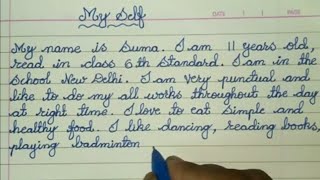 My Self
DATE
PAGE
My name is Suma. I am 11 years old,
read in class 6th standard. I am in the
school New Delhi. I am very punctual and
like to do my all works throughout the day
at right time. I love to eat simple and
healthy food. I like dancing, reading books,
playing badminton